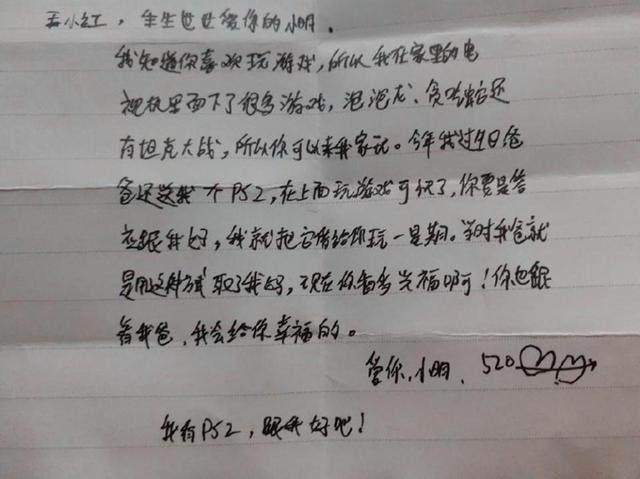 王小红，生生世世爱你的小明．
我知道你喜欢玩游戏，所以我在家里的电
视机里面下了很多游戏，泡泡龙、贪吃蛇还
有坦克大战，所以你可以来我家玩。今年我过生日爸
爸还送我个PS2，在上面玩游戏可好了，你要是答
应跟我好，我就把它借给你玩一星期。当时我爸就
是用这种方式取了我妈，现在你看多幸福啊！你也跟
着我爸，我会给你幸福的。
爱你，小明．520
我有PS2，跟我好吧！